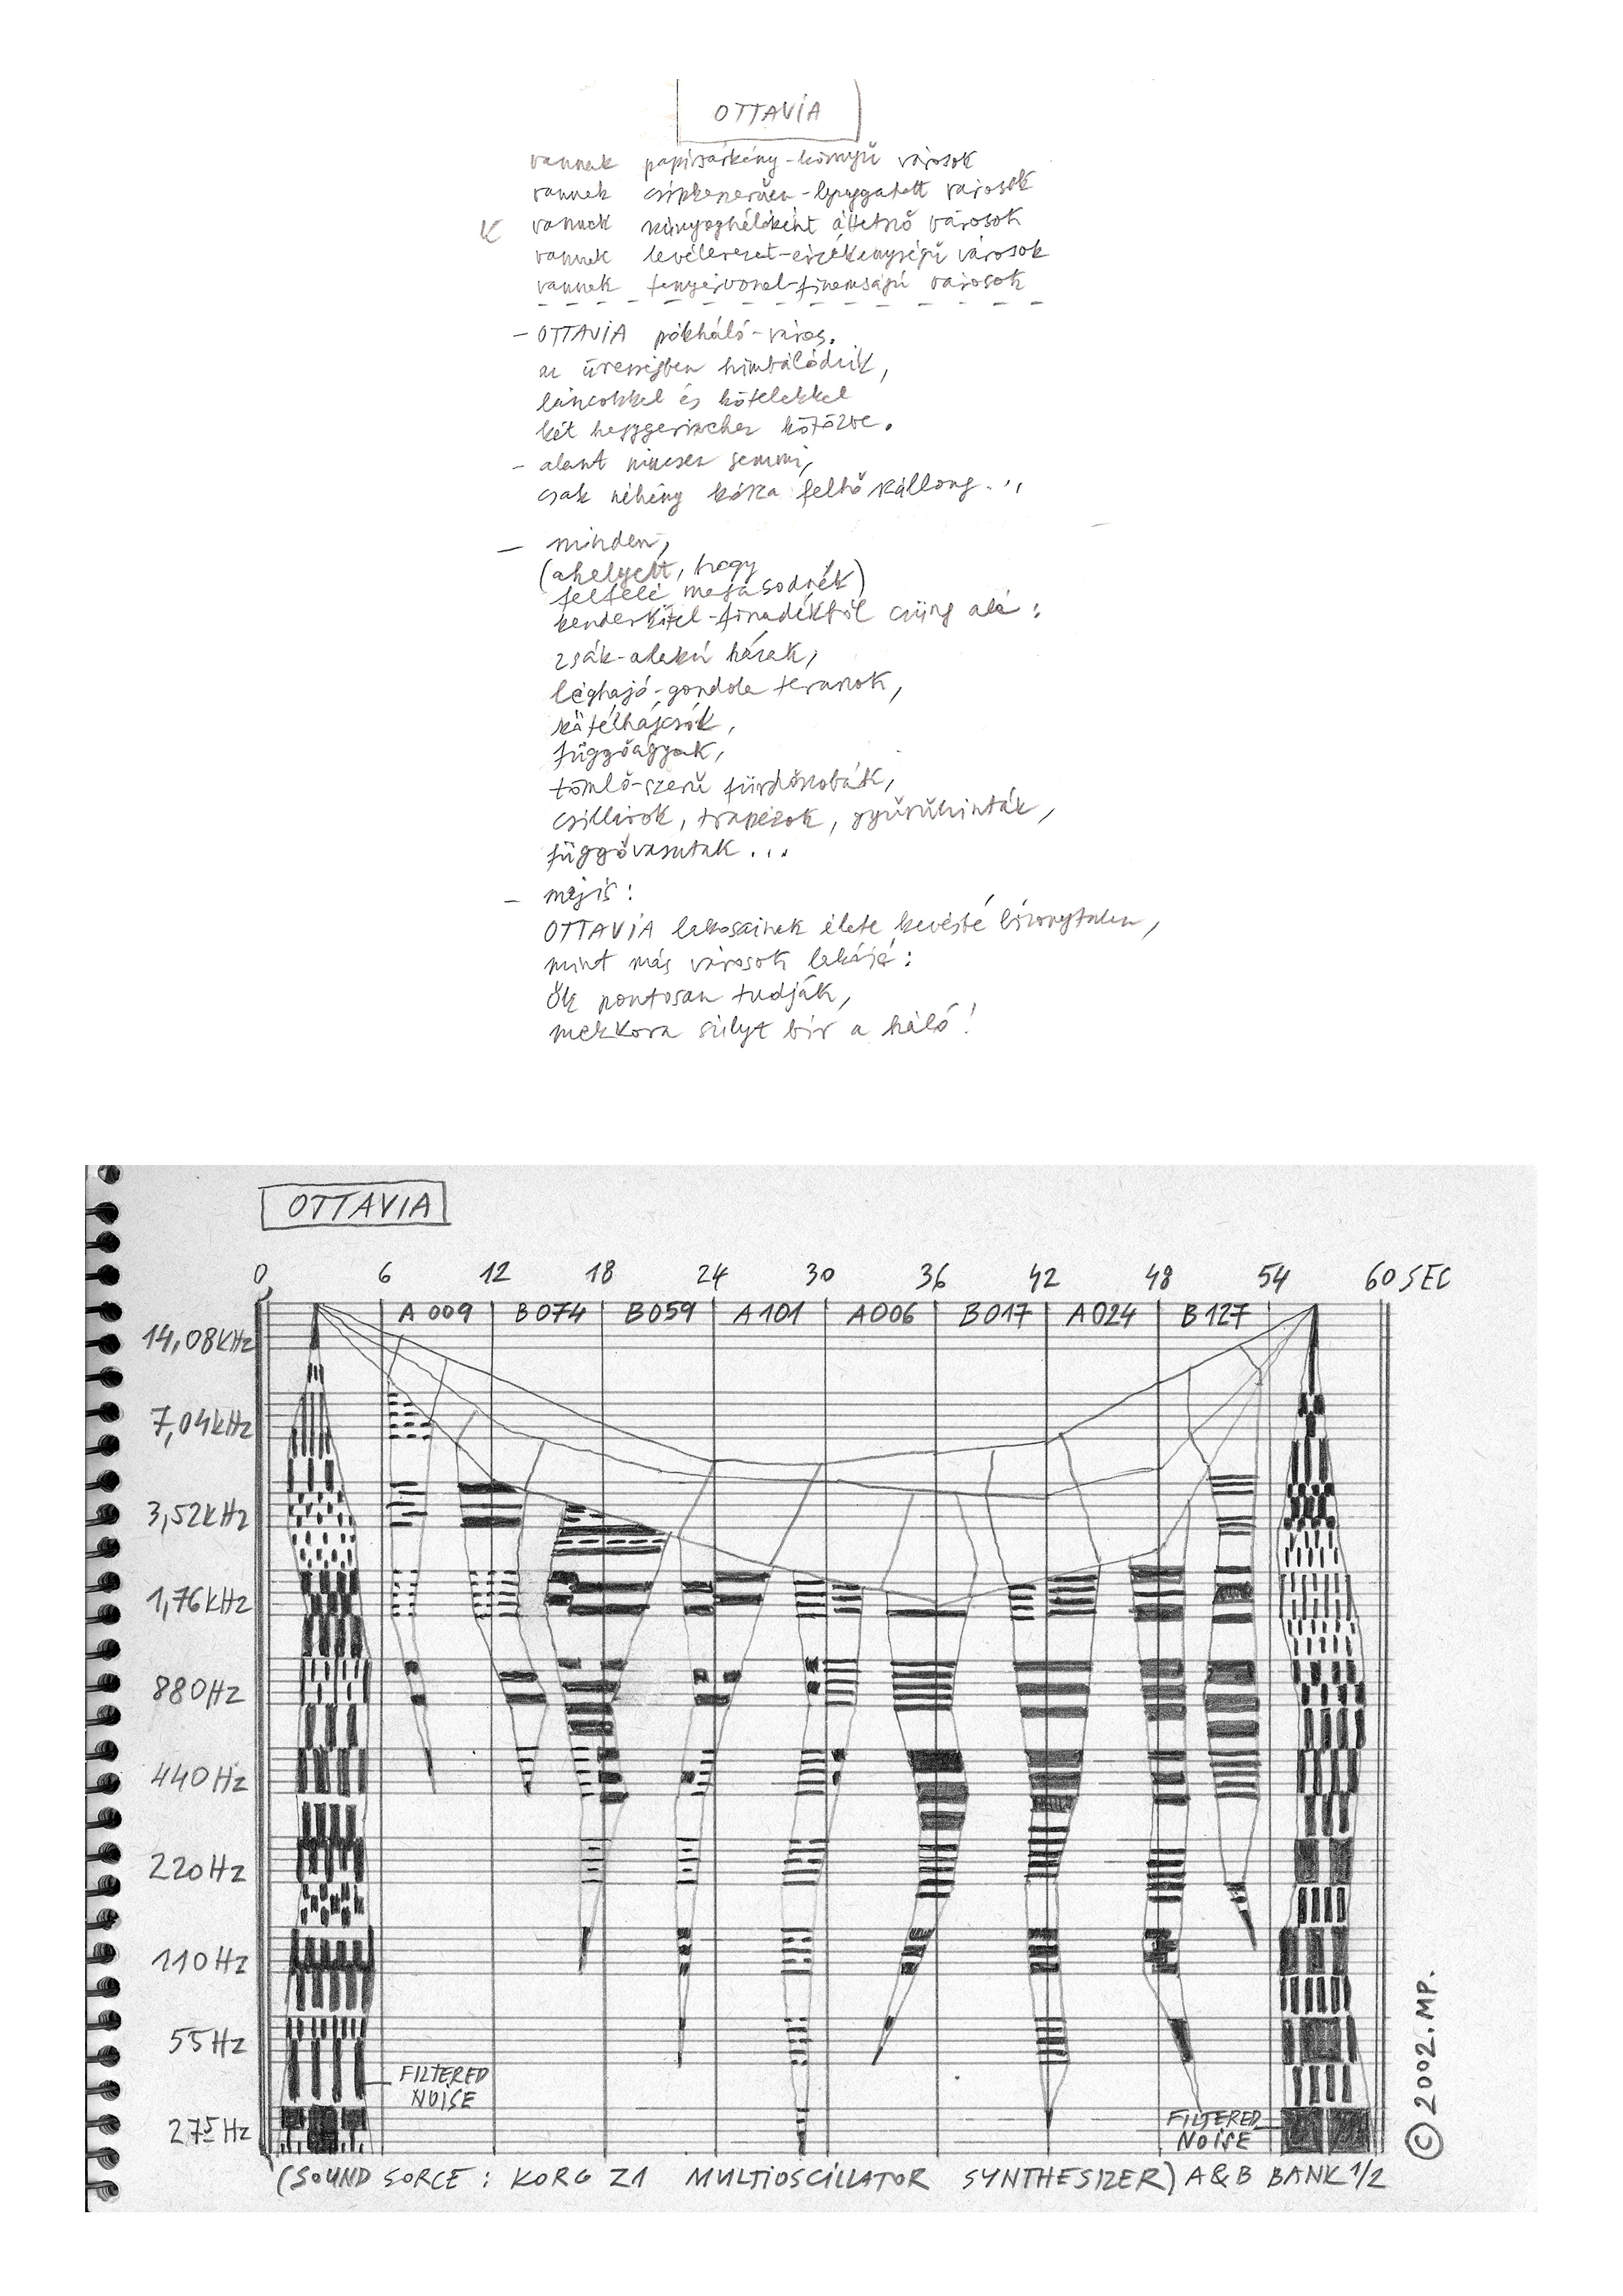 OTTAVIA
vannak papírsárkány-könnyű városok
vannak csipkeszerűen-lyuggatott városok
vannak szúnyoghálóként áttetsző városok
vannak levélerezet-érzékenységű városok
vannak tenyérvonal-finomságú városok
– OTTAVIA pókháló-város.
az ürességben himbálódzik,
láncokkal és kötelekkel
két hegygerinchez kötözve.
– alant nincsen semmi,
csak néhány kósza felhő szállong...
– minden,
(ahelyett, hogy
felfelé magasodnék)
kenderkötél-fonadékból csüng alá:
zsák-alakú házak,
léghajó-gondola teraszok,
kötélhágcsók,
függőágyak,
tömlő-szerű fürdőszobák,
csillárok, trapézok, gyűrűhinták,
függővasutak...
– mégis:
OTTAVIA lakosainak élete kevésbé bizonytalan,
mint más városok lakójáé:
ők pontosan tudják,
mekkora súlyt bír a háló!
OTTAVIA
0 6 12 18 24 30 36 42 48 54 60 SEC
A009 B074 B059 A101 A006 B017 A024 B127
14,08kHz
7,04kHz
3,52kHz
1,76kHz
880Hz
440Hz
220Hz
110Hz
55Hz
FILTERED
NOISE
27,5Hz
FILTERED
NOISE
© 2002. MP.
(SOUND SORCE: KORG Z1 MULTIOSCILLATOR SYNTHESIZER) A&B BANK 1/2